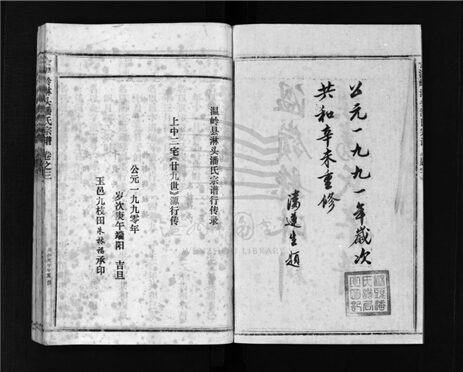 公元一九九一年歲次
共和辛未重修
潘蓮生題
温岭县淋头潘氏宗谱行传承
上中二宅《廿九世》源行传
公元一九九零年
岁次庚午端阳 吉旦
玉邑九枝田朱林福承印
淋头潘氏宗谱 卷之三